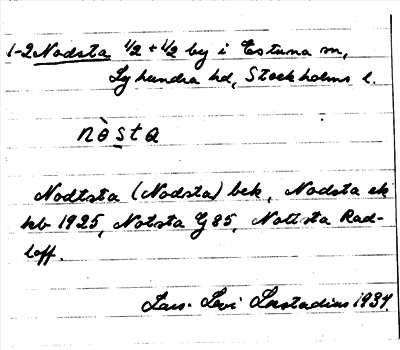 1-2 Nodsta 1/2 + 1/2 by i Estuna sn,
Lyhundra hd, Stockholms l.
nò̀sta
Nodtsta (Nodsta) bek, Nodsta ek
kb 1925, Notsta G 85, Nottsta Rad-
loff.
Lars-Levi Læstadius 1934.